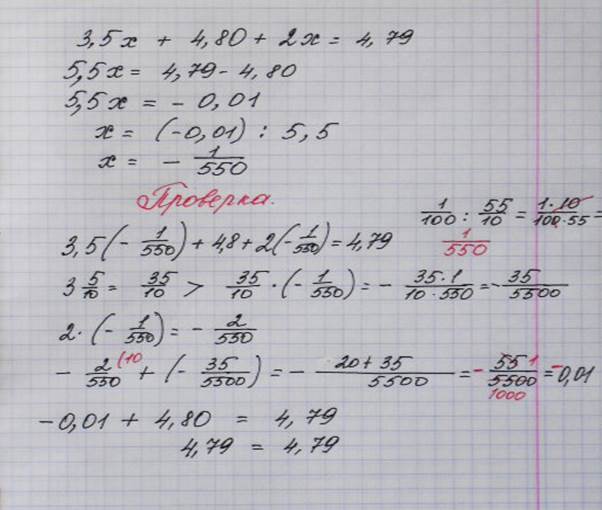 3,5x + 4,80 + 2x = 4,79
5,5x = 4,79 - 4,80
5,5x = - 0,01
x = (-0,01) : 5,5
x = - 1/550
Проверка.
1/100 : 55/10 = 1·10/100·55 =
1/550
3,5(- 1/550) + 4,8 + 2(- 1/550) = 4,79
3 5/10 = 35/10 > 35/10 · (- 1/550) = - 35·1/10·550 = - 35/5500
2· (- 1/550) = - 2/550
- 2/550 (10 + (- 35/5500) = - 20+35/5500 = - 55 1/5500 1000 = -0,01
-0,01 + 4,80 = 4,79
4,79 = 4,79